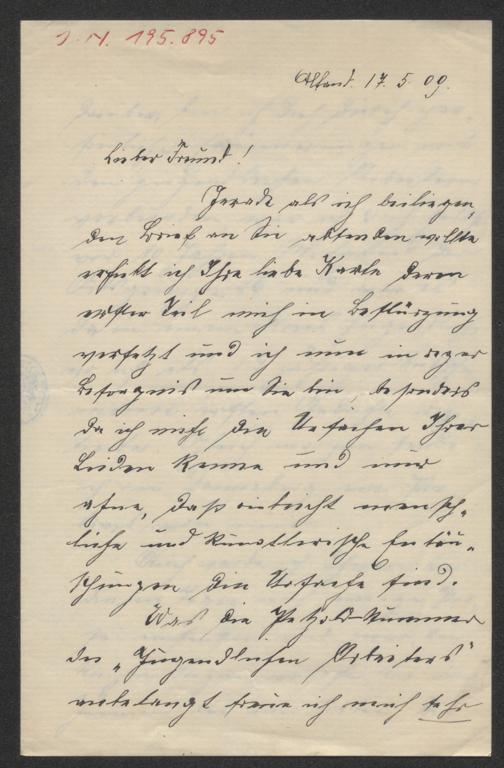 J. N. 195.895
Alland. 17. 5. 09.
Lieber Freund!
Gerade als ich beiliegen,
den Brief an Sie absenden wollte
erhielt ich Ihre liebe Karte deren
erster Teil mich in Bestürzung
versetzt und ich nun in reger
Besorgnis um Sie bin, besonders
da ich nicht die Ursachen Ihrer
Leiden kenne und nur
ahne, daß vielleicht mensch„
liche und künstlerische Entäu„
schungen die Ursache sind.
Was die Petzold-Nummer
des „Jugendlichen Arbeiters"
anbelangt freue ich mich sehr